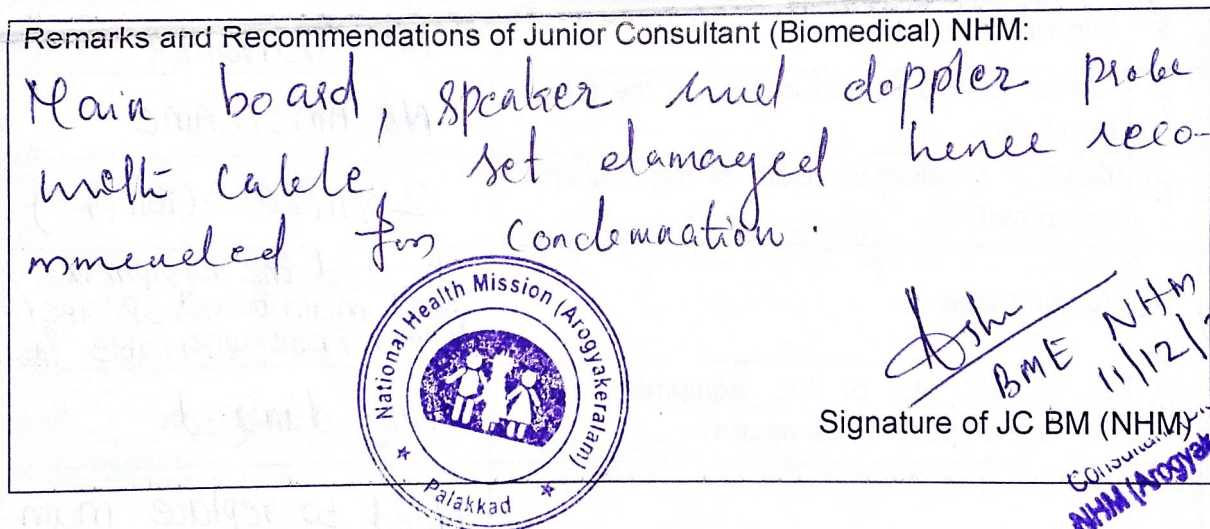 Remarks and Recommendations of Junior Consultant (Biomedical) NHM:
Main board, speaker and doppler probe
with cable set damaged hence reco-
mmended for Condemnation.
National Health Mission (Arogyakeralam)
Palakkad
BME NHM
11/12/
Signature of JC BM (NHM)
NHM (Arogyak